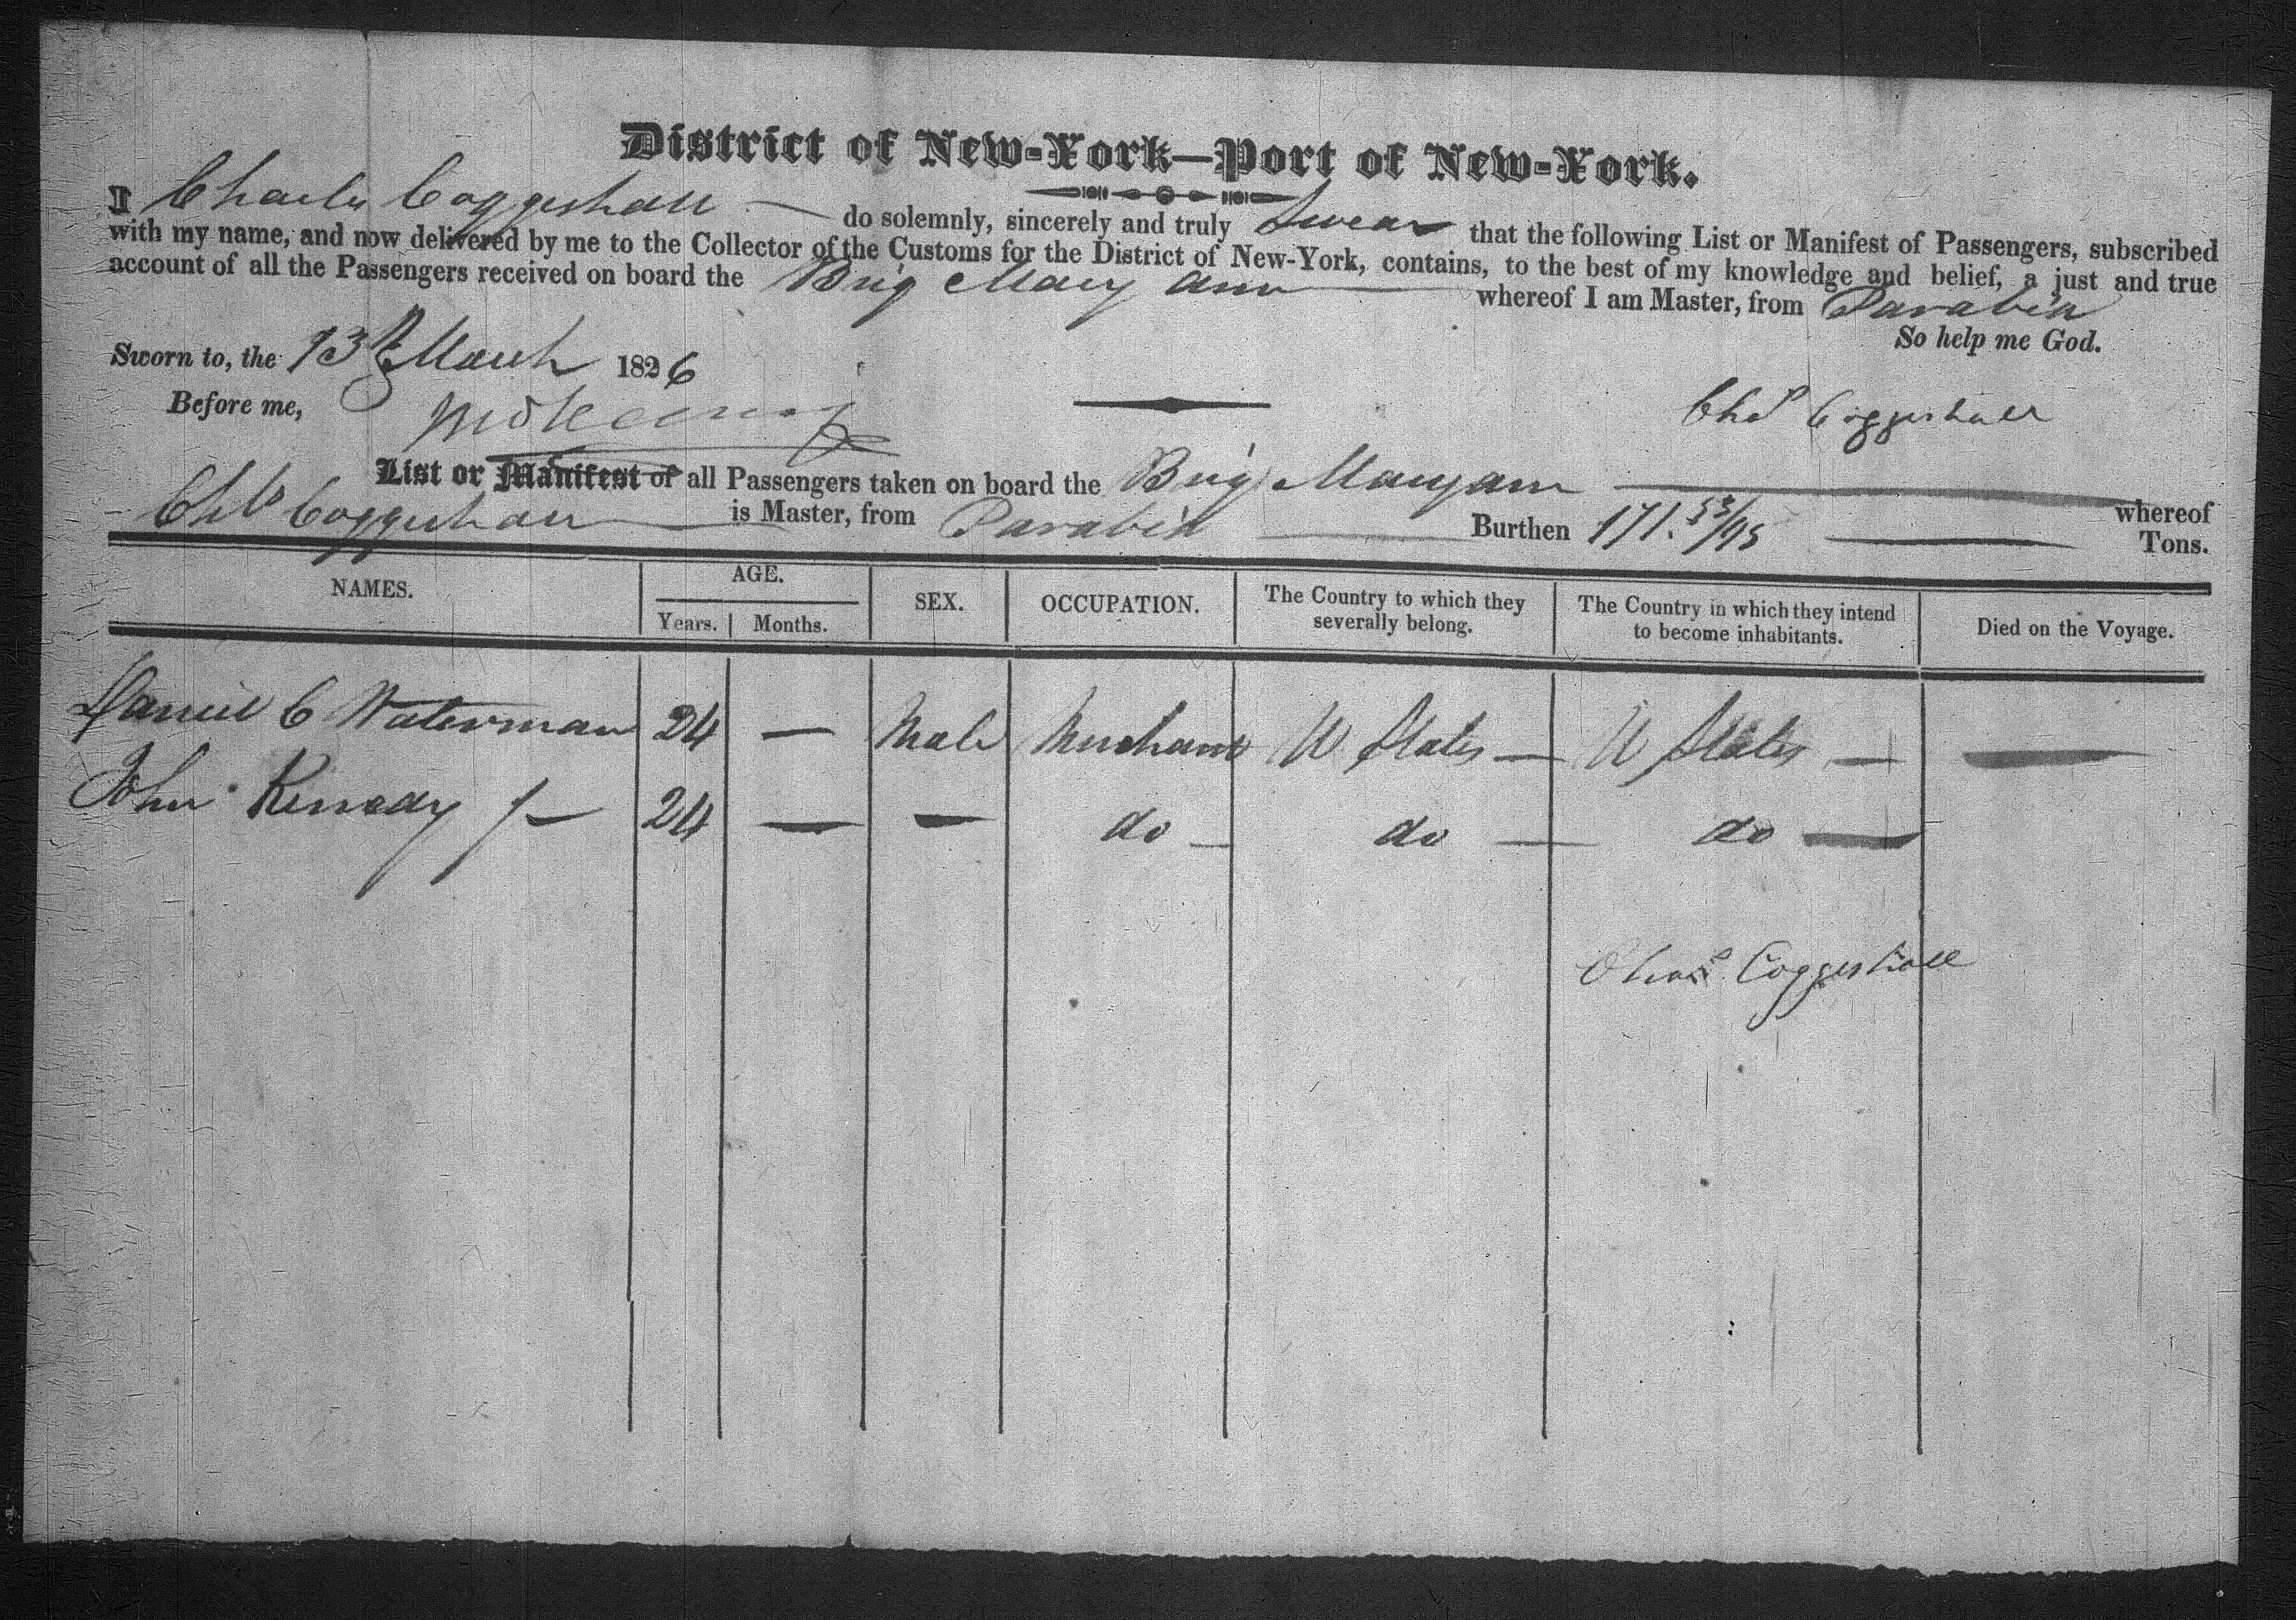 District of New-York—Port of New-York.
I Charles Coggeshall — do solemnly, sincerely and truly Swear that the following List or Manifest of Passengers, subscribed
with my name, and now delivered by me to the Collector of the Customs for the District of New-York, contains, to the best of my knowledge and belief, a just and true
account of all the Passengers received on board the Brig Mary Ann — whereof I am Master, from
So help me God.
Sworn to, the 13th March 1826
Before me,
Chas Coggeshall
List or Manifest of all Passengers taken on board the Brig Maryann — whereof
Chs Coggeshall — is Master, from — Burthen 171. 53/95 — Tons.
NAMES. AGE. SEX. OCCUPATION. The Country to which they severally belong. The Country in which they intend to become inhabitants. Died on the Voyage.
Years. Months.
Daniel C Waterman 24 — Male Merchant U States — U States — —
John Kennedy 24 — — do — do — do —
Chas Coggeshall